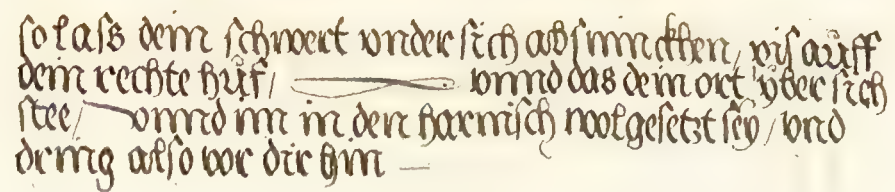 so lass dein schwert vnder sich absinnckhen, bis auff
dein rechte hüf, vnnd das dein ort yber sich
stee, vnnd im in den harnisch wol gesetzt sey, vnd
dring also vor dir hin